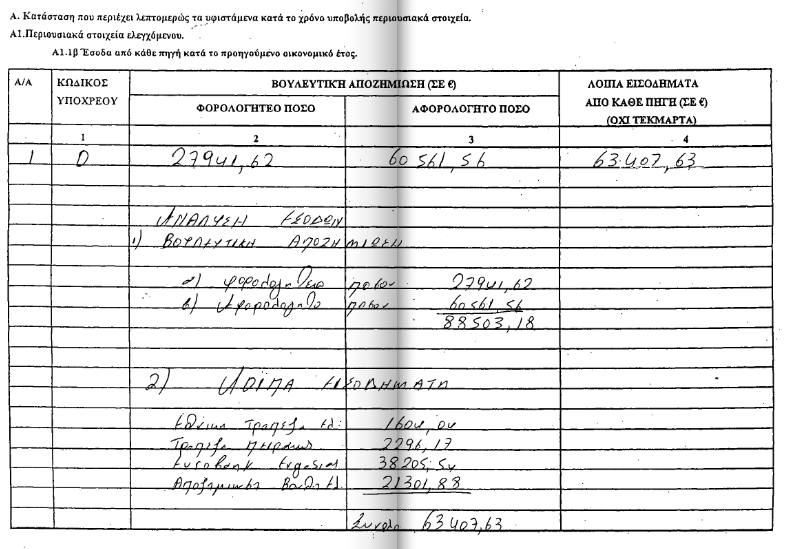 Α. Κατάσταση που περιέχει λεπτομερώς τα υφιστάμενα κατά το χρόνο υποβολής περιουσιακά στοιχεία.
Α1.Περιουσιακά στοιχεία ελεγχόμενου.
Α1.1β Έσοδα από κάθε πηγή κατά το προηγούμενο οικονομικό έτος.
Α/Α ΚΩΔΙΚΟΣ ΥΠΟΧΡΕΟΥ ΒΟΥΛΕΥΤΙΚΗ ΑΠΟΖΗΜΙΩΣΗ (ΣΕ €) ΛΟΙΠΑ ΕΙΣΟΔΗΜΑΤΑ ΑΠΟ ΚΑΘΕ ΠΗΓΗ (ΣΕ €) (ΟΧΙ ΤΕΚΜΑΡΤΑ)
ΦΟΡΟΛΟΓΗΤΕΟ ΠΟΣΟ ΑΦΟΡΟΛΟΓΗΤΟ ΠΟΣΟ
1 2 3 4
1 0 27941,62 60561,56 63.407,63
ΑΝΑΛΥΣΗ ΕΣΟΔΩΝ
1) ΒΟΥΛΕΥΤΙΚΗ ΑΠΟΖΗΜΙΩΣΗ
α) φορολογητεο ποσον 27941,62
β) Αφορολογητο ποσον 60561,56
88503,18
2) ΛΟΙΠΑ ΕΙΣΟΔΗΜΑΤΑ
Εθνικη Τραπεζα Ελ: 1604,04
Τραπεζα Πειραιως 2296,17
Eurobank Ergasias 38205,54
21301,88
Συνολο 63407,63